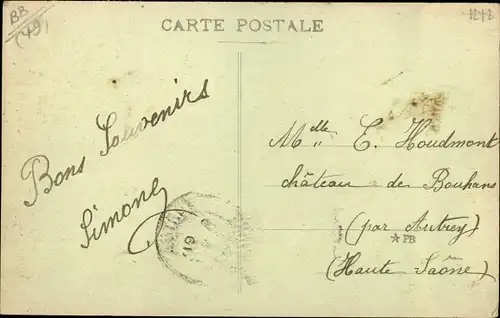 BB
(49)
CARTE POSTALE
1242
Bons Souvenirs
Simone
Melle E. Houdmont
château de Bouhans
(par Autrey)
★PB
(Haute Saône)
19